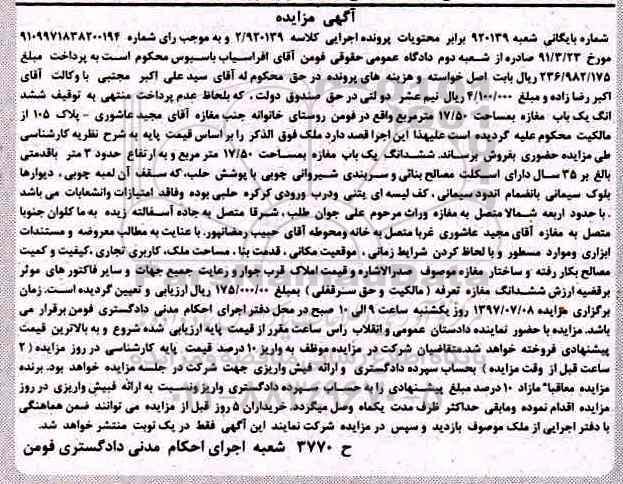 آگهی مزایده
شماره بایگانی شعبه ۹۲۰۱۳۹ برابر محتویات پرونده اجرایی کلاسه ۲/۹۲۰۱۳۹ و به موجب رای شماره ۹۱۰۹۹۷۱۸۳۸۲۰۰۱۹۴
مورخ ۹۱/۳/۲۳ صادره از شعبه دوم دادگاه عمومی حقوقی فومن آقای افراسیاب باسیوس محکوم است به پرداخت مبلغ
۲۳۶/۹۸۲/۱۷۵ ریال بابت اصل خواسته و هزینه های پرونده در حق محکوم له آقای سید علی اکبر مجتبی با وکالت آقای
اکبر رضا زاده و مبلغ ۴/۱۰۰/۰۰۰ ریال نیم عشر دولتی در حق صندوق دولت ، که بلحاظ عدم پرداخت منتهی به توقیف ششد
انگ یک باب مغازه بمساحت ۱۷/۵۰ مترمربع واقع در فومن روستای خانوانه جنب مغازه آقای مجید عاشوری - پلاک ۱۰۵ از
مالکیت محکوم علیه گردیده است علیهذا این اجرا قصد دارد ملک فوق الذکر را بر اساس قیمت پایه به شرح نظریه کارشناسی
طی مزایده حضوری بفروش برساند. ششدانگ یک باب مغازه بمساحت ۱۷/۵۰ متر مربع و به ارتفاع حدود ۳ متر باقدمتی
بالغ بر ۳۵ سال دارای اسکلت مصالح بنائی و سربندی شیروانی چوبی با پوشش حلب، که سقف آن لمبه چوبی ، دیوارها
بلوک سیمانی بانضمام اندود سیمانی ، کف لیسه ای بتنی ودرب ورودی کرکره حلبی بوده وفاقد امتیازات وانشعابات می باشد
. با حدود اربعه شمالا متصل به مغازه وراث مرحوم علی جوان طلب ، شرقا متصل به جاده آسفالته زیده به ماکلوان جنوبا
متصل به مغازه آقای مجید عاشوری غربا متصل به خانه ومحوطه آقای حبیب رمضانپور. با عنایت به مطالب معروضه و مستندات
ابزاری وموارد مسطور و با لحاظ کردن شرایط زمانی ، موقعیت مکانی ، قدمت بنا ، مساحت ملک، کاربری تجاری ،کیفیت و کمیت
مصالح بکار رفته و ساختار مغازه موصوف صدرالاشاره و قیمت املاک قرب جوار و رعایت جمیع جهات و سایر فاکتور های موثر
برقضیه ارزش ششدانگ مغازه تعرفه ( مالکیت و حق سرقفلی ) بمبلغ ۱۷۵/۰۰۰/۰۰ ریال ارزیابی و تعیین گردیده است. زمان
برگزاری مزایده ۱۳۹۷/۰۷/۰۸ روز یکشنبه ساعت ۹ الی ۱۰ صبح در محل دفتر اجرای احکام مدنی دادگستری فومن برقرار می
باشد. مزایده با حضور نماینده دادستان عمومی و انقلاب راس ساعت مقرر از قیمت پایه ارزیابی شده شروع و به بالاترین قیمت
پیشنهادی فروخته خواهد شد.متقاضیان شرکت در مزایده موظف به واریز ۱۰ درصد قیمت پایه کارشناسی در روز مزایده ( ۲
ساعت قبل از وقت مزایده ) بحساب سپرده دادگستری و ارائه فیش واریزی جهت شرکت در جلسه مزایده خواهد بود. برنده
مزایده معاقبا" مازاد ۱۰ درصد مبلغ پیشنهادی را به حساب سپرده دادگستری واریز ونسبت به ارائه فیش واریزی در روز
مزایده اقدام نموده ومابقی حداکثر ظرف مدت یکماه وصل میگردد. خریداران ۵ روز قبل از مزایده می توانند ضمن هماهنگی
با دفتر اجرایی از ملک موصوف بازدید و سپس در مزایده شرکت نمایند این آگهی فقط در یک نوبت منتشر خواهد شد.
ح ۳۷۷۰ شعبه اجرای احکام مدنی دادگستری فومن